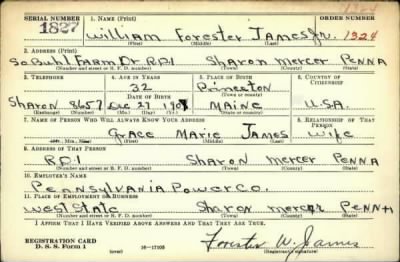 SERIAL NUMBER 1. NAME (Print) ORDER NUMBER
1827 William Forester James Jr. 1324
(First) (Middle) (Last)
2. ADDRESS (Print)
So Buhl Farm Dr RD1 Sharon Mercer Penna
(Number and street or R. F. D. number) (Town) (County) (State)
3. TELEPHONE 4. AGE IN YEARS 5. PLACE OF BIRTH 6. COUNTRY OF CITIZENSHIP
32 Princeton
DATE OF BIRTH (Town or county)
Sharon 8657 Dec 27 1907 Maine U.S.A.
(Exchange) (Number) (Mo.) (Day) (Yr.) (State or country)
7. NAME OF PERSON WHO WILL ALWAYS KNOW YOUR ADDRESS 8. RELATIONSHIP OF THAT PERSON
Grace Marie James Wife
(Mr., Mrs., Miss) (First) (Middle) (Last)
9. ADDRESS OF THAT PERSON
RD1 Sharon Mercer Penna
(Number and street or R. F. D. number) (Town) (County) (State)
10. EMPLOYER'S NAME
Pennsylvania Power Co.
11. PLACE OF EMPLOYMENT OR BUSINESS
West State Sharon Mercer Penna
(Number and street or R. F. D. number) (Town) (County) (State)
I AFFIRM THAT I HAVE VERIFIED ABOVE ANSWERS AND THAT THEY ARE TRUE.
REGISTRATION CARD
D. S. S. Form 1 (over) 16-17105 Forester W. James